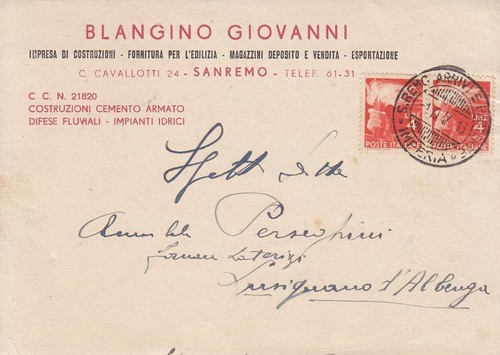 BLANGINO GIOVANNI
IMPRESA DI COSTRUZIONI - FORNITURA PER L'EDILIZIA - MAGAZZINI DEPOSITO E VENDITA - ESPORTAZIONE
C. CAVALLOTTI 24 - SANREMO - TELEF. 61-31
C C. N. 21820
COSTRUZIONI CEMENTO ARMATO
DIFESE FLUVIALI - IMPIANTI IDRICI
S. REMO ARRIVI E
IMPERIA
LIRE 4
POSTE ITALIANE
POSTE ITALIANE
Spett Ditta
Perseghini
Fornace Laterizi
Lusignano d'Albenga